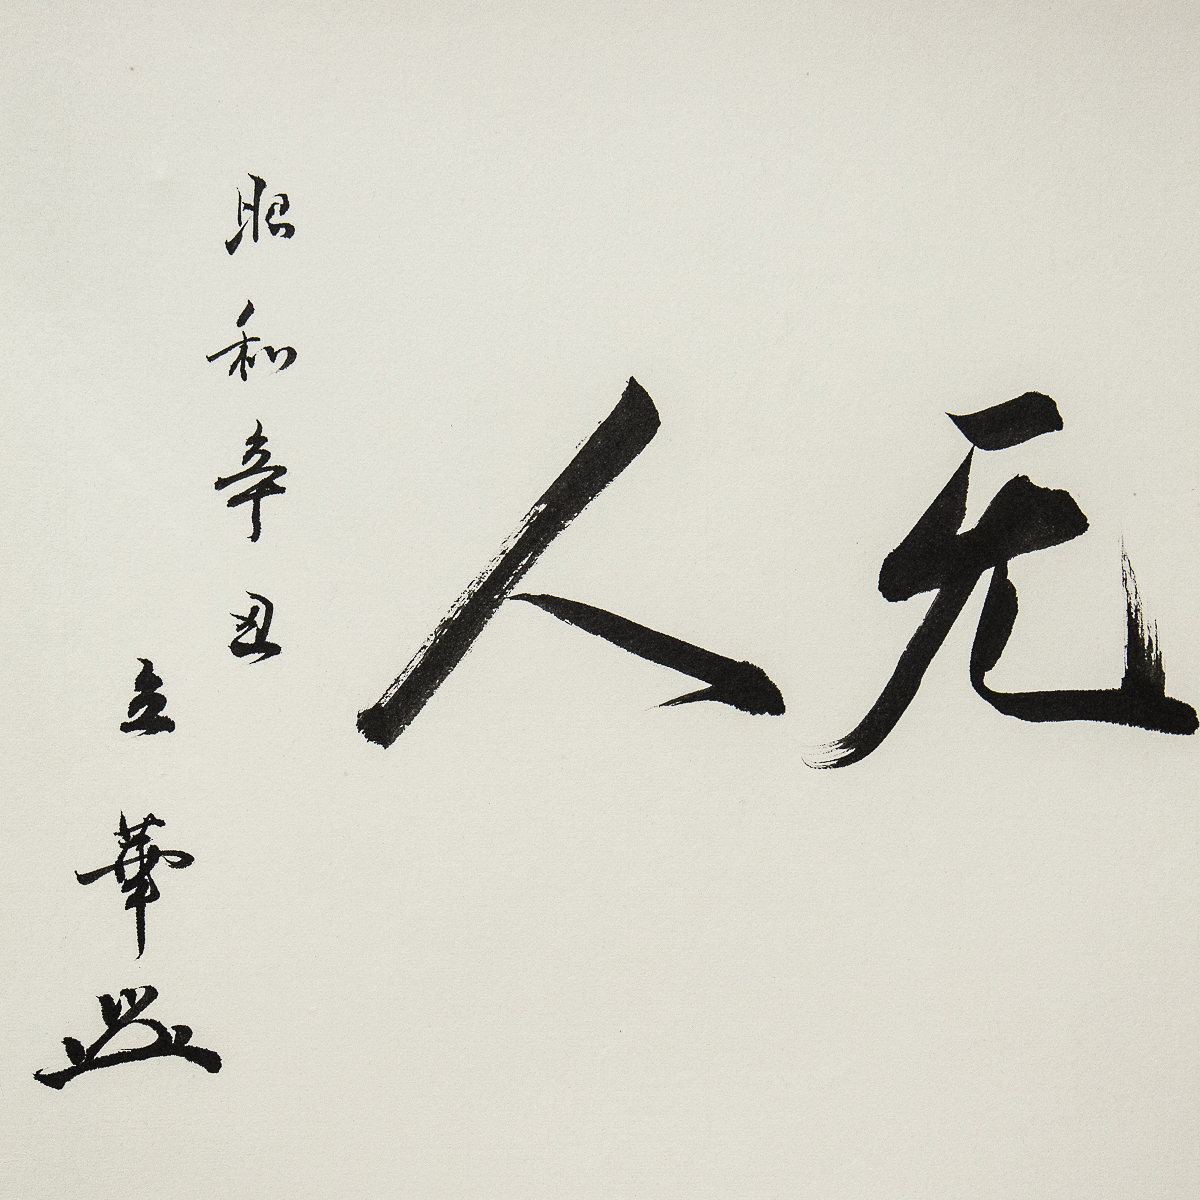 无人
昭和辛丑
立華